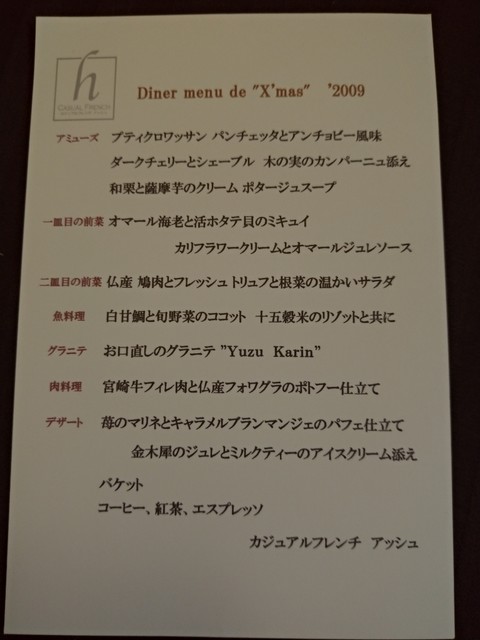 h
CASUAL FRENCH
Diner menu de "X'mas" '2009
アミューズ プティクロワッサン パンチェッタとアンチョビー風味
ダークチェリーとシェーブル 木の実のカンパーニュ添え
和栗と薩摩芋のクリーム ポタージュスープ
一皿目の前菜 オマール海老と活ホタテ貝のミキュイ
カリフラワークリームとオマールジュレソース
二皿目の前菜 仏産 鳩肉とフレッシュトリュフと根菜の温かいサラダ
魚料理 白甘鯛と旬野菜のココット 十五穀米のリゾットと共に
グラニテ お口直しのグラニテ "Yuzu Karin"
肉料理 宮崎牛フィレ肉と仏産フォワグラのポトフー仕立て
デザート 苺のマリネとキャラメルブランマンジェのパフェ仕立て
金木犀のジュレとミルクティーのアイスクリーム添え
バケット
コーヒー、紅茶、エスプレッソ
カジュアルフレンチ アッシュ